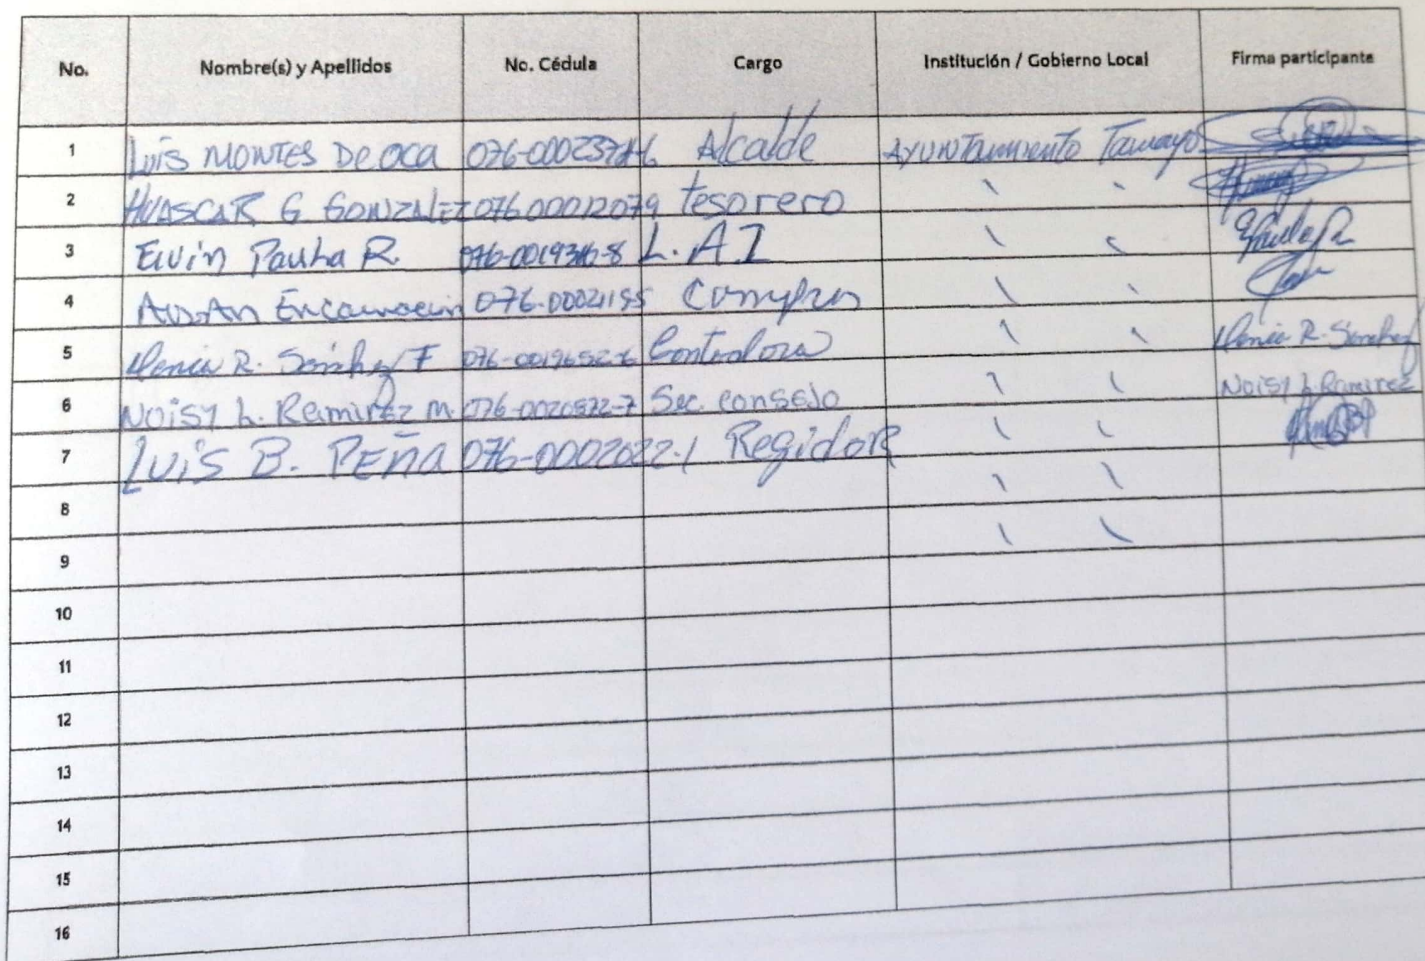 No. Nombre(s) y Apellidos No. Cédula Cargo Institución / Gobierno Local Firma participante
1 Luis MONTES De OCA Alcalde AYUNTamiento Tamayo
2 HUASCAR G. GONZALEZ 07600012079 Tesorero
3 Elvin Paula R. L.A.I
4 Encarnación 076-00021195 Compras
5 R. Sánchez F 076-0019652-6 Contralora R. Sánchez
6 NOISY L. Ramirez M. 076-0020572-7 Sec. consejo NOISY L. Ramirez
7 LUIS B. PEÑA 076-0002022-1 RegidoR
8
9
10
11
12
13
14
15
16